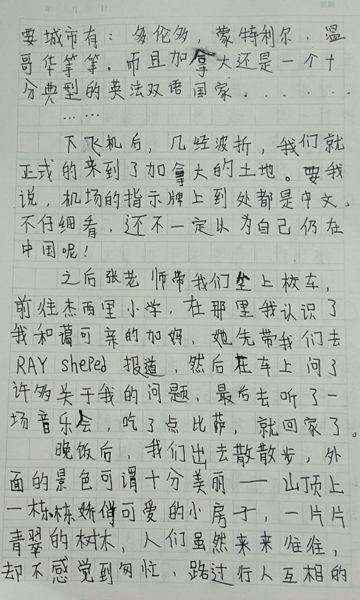 要城市有：多伦多，蒙特利尔，温
哥华等等。而且加拿大还是一个十
分典型的英法双语国家。.....
......
下飞机后，几经波折，我们就
正式的来到了加拿大的土地。要我
说，机场的指示牌上到处都是中文，
不仔细看，还不一定以为自己仍在
中国呢！
之后张老师带我们坐上校车，
前往杰西里小学，在那里我认识了
我和蔼可亲的加妈，她先带我们去
RAY sheped 报道，然后在车上问了
许多关于我的问题，最后去听了一
场音乐会，吃了点比萨，就回家了。
晚饭后，我们出去散散步，外
面的景色可谓十分美丽——山顶上
一栋栋娇俏可爱的小房子，一片片
青翠的树木，人们虽然来来往往，
却不感觉到匆忙，路过行人互相的